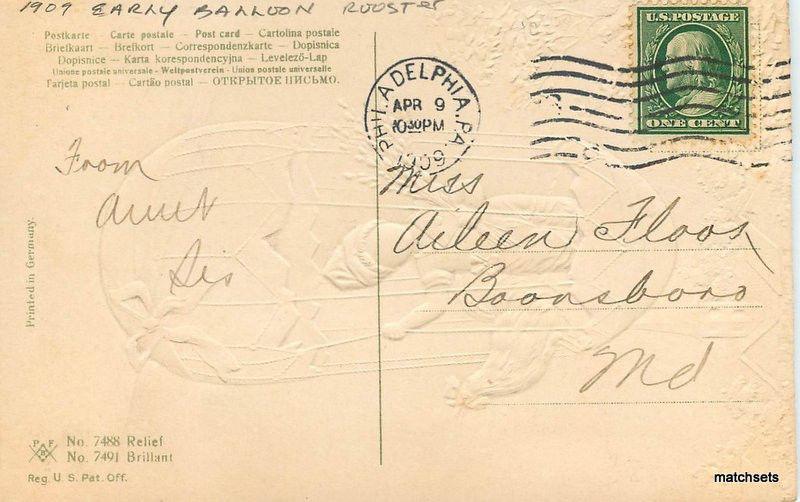 1909 EARLY BALLOON ROOSTER
Postkarte — Carte postale — Post card — Cartolina postale
Briefkaart — Brefkort — Correspondenzkarte — Dopisnica
Dopisnice — Karta korespondencyjna — Levelező-Lap
Unione postale universale - Weltpostverein - Union postale universelle
Tarjeta postal — Cartão postal — ОТКРЫТОЕ ПИСЬМО.
U.S. POSTAGE
ONE CENT
PHILADELPHIA, PA.
APR 9
10 30 PM
1909
From
Aunt
Sis
Miss
Aileen Floos
Boonsboro
Md
Printed in Germany.
P F B
No. 7488 Relief
No. 7491 Brillant
Reg. U. S. Pat. Off.
matchsets